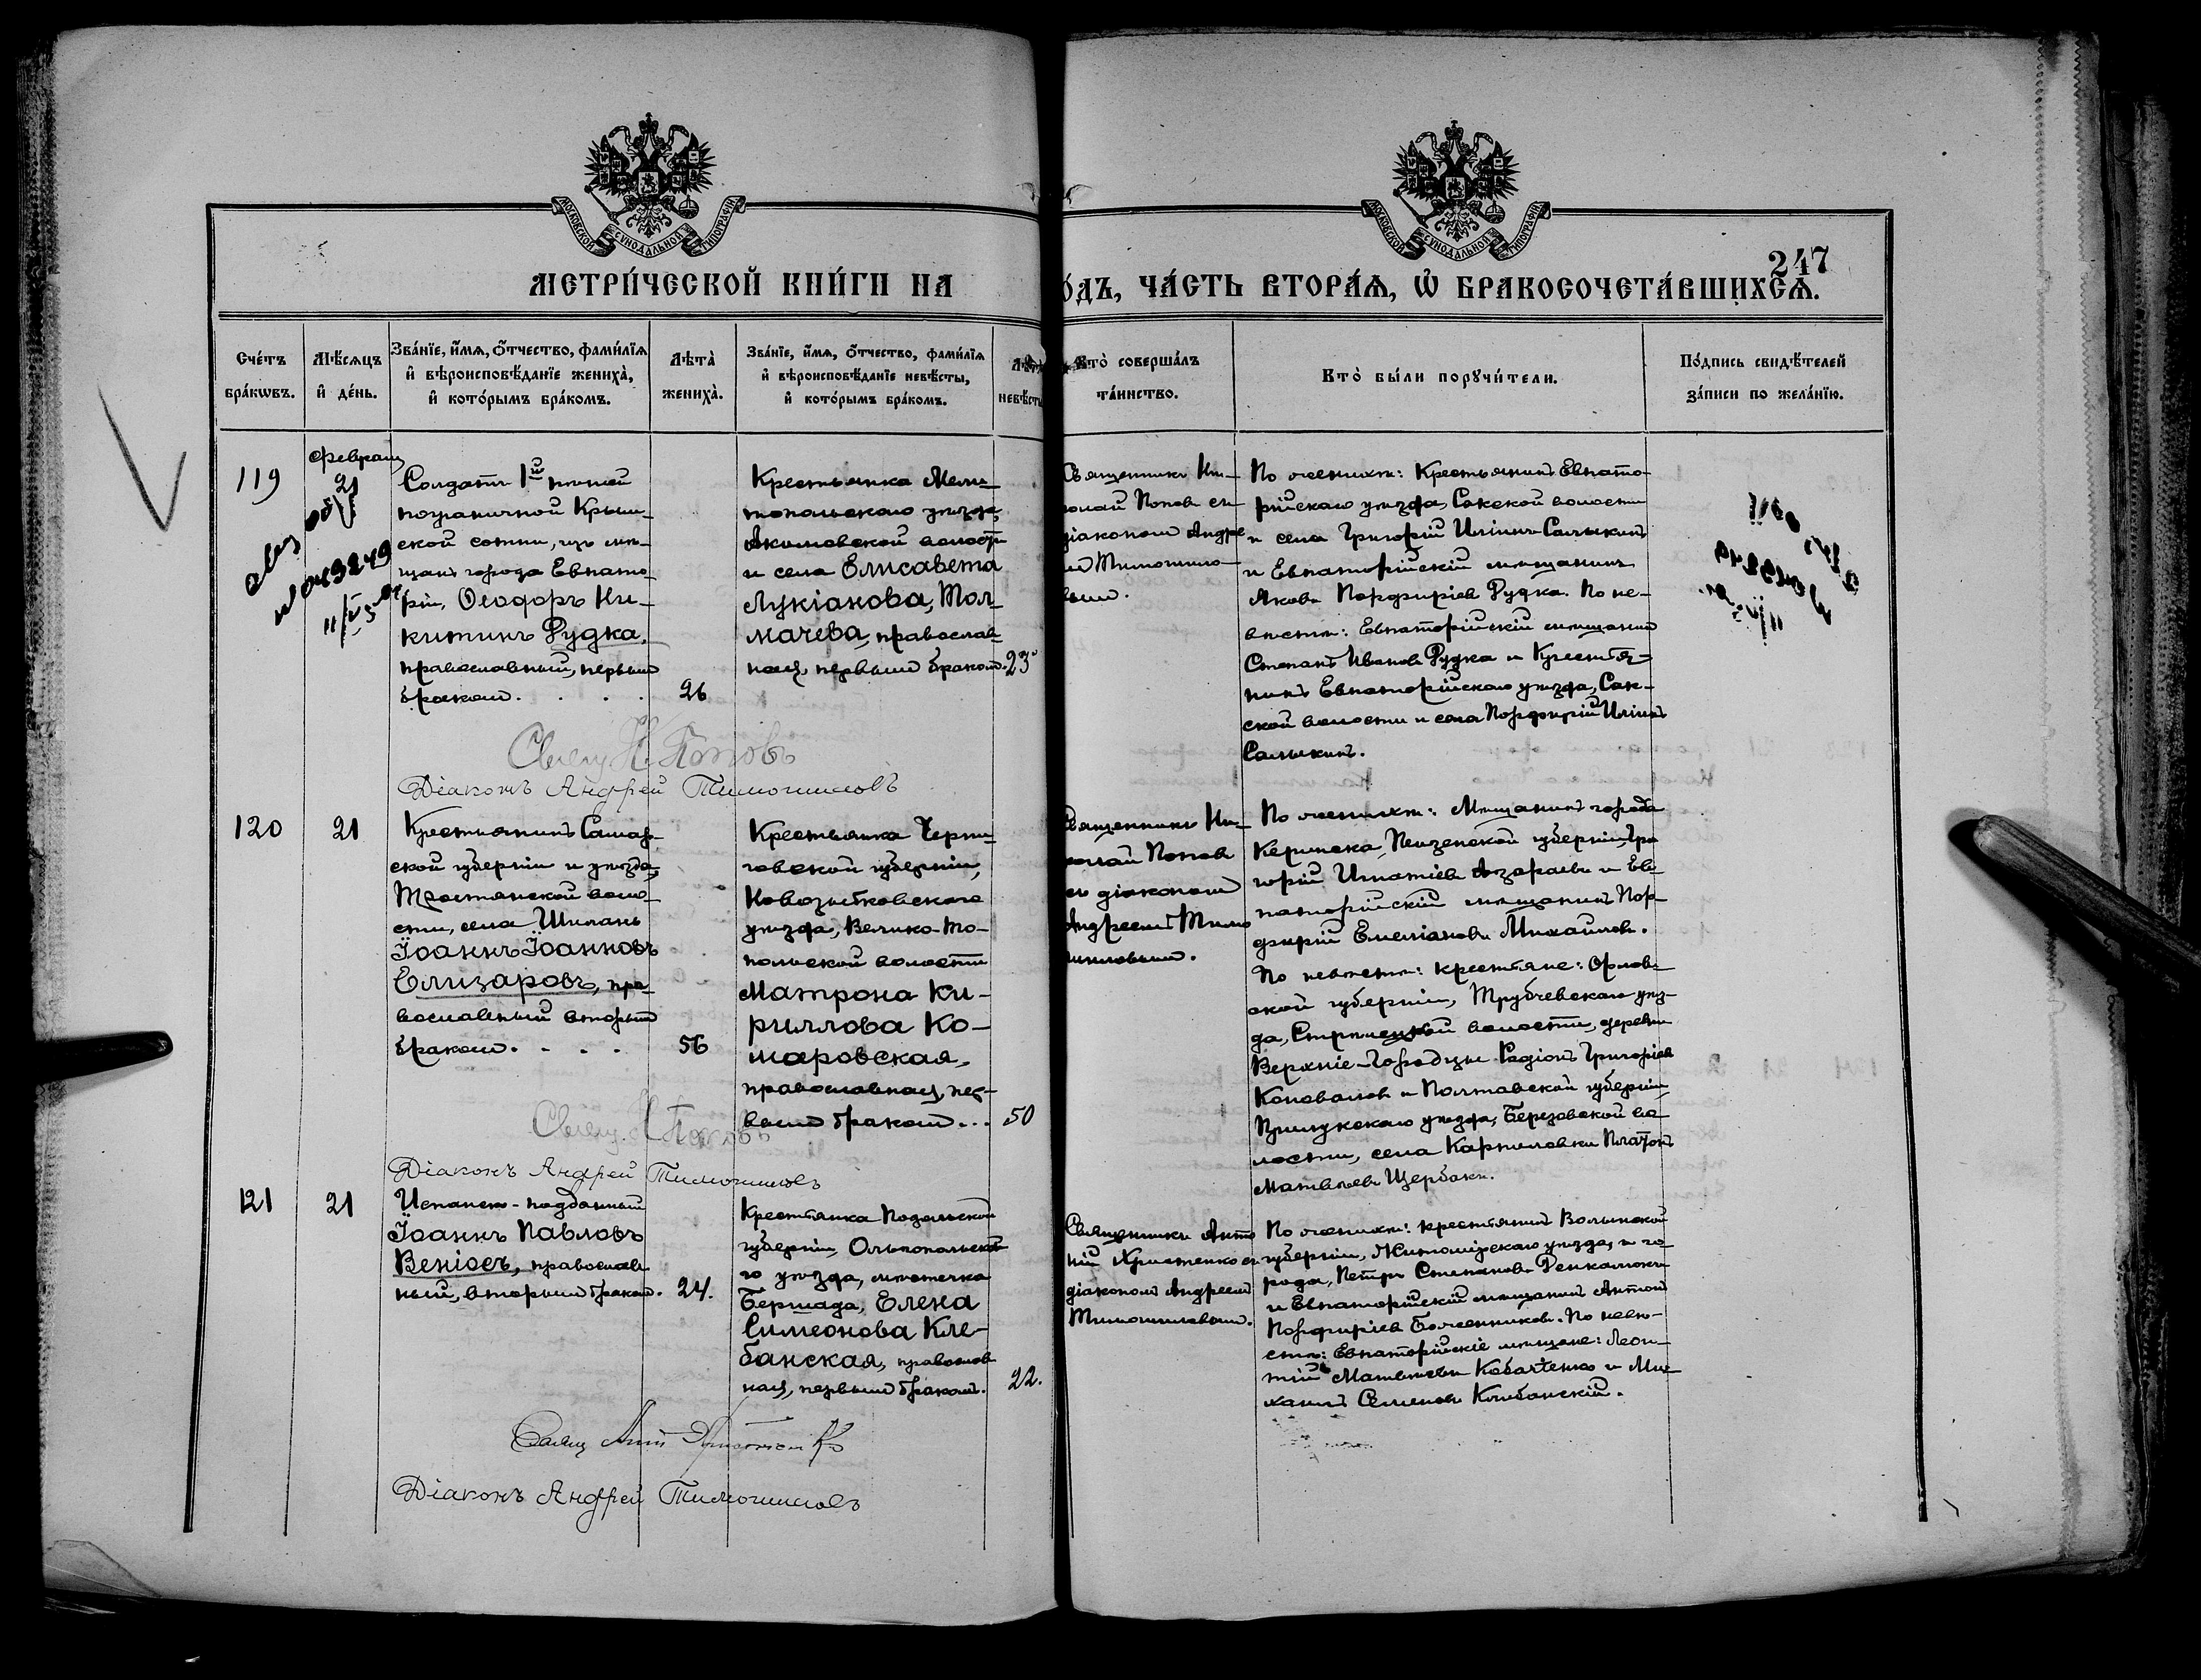 МОСКОВСКОЙ СѴНОДАЛЬНОЙ ТИПОГРАФІИ
МОСКОВСКОЙ СѴНОДАЛЬНОЙ ТИПОГРАФІИ
247
МЕТРИ́ЧЕСКОЙ КНИ́ГИ НА
О́ДЪ, ЧА́СТЬ ВТОРА́Ѧ, Ѡ҆ БРАКОСОЧЕТА́ВШИХСѦ.
Сче́тъ бра́кѡвъ.
Мѣ́сѧцъ и҆ де́нь.
Зва́нїе, и҆́мѧ, ѻ҆́тчество, фами́лїѧ
и҆ вѣроисповѣ́данїе жениха̀,
и҆ кото́рымъ бра́комъ.
Лѣта̀ жениха̀.
Зва́нїе, и҆́мѧ, ѻ҆́тчество, фами́лїѧ
и҆ вѣроисповѣ́данїе невѣ́сты,
и҆ кото́рымъ бра́комъ.
Кто̀ соверша́лъ
та́инство.
Кто̀ бы́ли порꙋчи́тели.
По́дпись свидѣ́телей
за́писи по жела́нїю.
119
Февраля
21
Солдатъ 1й
пограничной Крым-
ской сотни, изъ мѣ-
щанъ города Евпато-
ріи, Ѳеодоръ Ни-
китинъ Рудка,
православный, первымъ
бракомъ. . . .
26
Крестьянка Мели-
топольскаго уѣзда,
Акимовской волости
и села Елисавета
Лукіанова, Тол-
мачева, православ-
ная, первымъ бракомъ.
23
Священникъ Ни-
колай Поповъ съ
діакономъ Андре
По женихѣ: Крестьянинъ Евпато-
рійскаго уѣзда, Сакской волости
и села Григорій Ильинъ Салыкинъ
и Евпаторійскій мѣщанинъ
Яковъ Порфиріевъ Рудка. По не-
вѣстѣ: Евпаторійскій мѣщанинъ
Степанъ Ивановъ Рудка и Крестья-
нинъ Евпаторійскаго уѣзда, Сак-
ской волости и села Порфирій Ильинъ
Салыкинъ.
Свящ. Н. Поповъ
Діаконъ Андрей Тимошиловъ
120
21
Крестьянинъ Самар-
ской губерніи и уѣзда,
Тростянской воло-
сти, села Шиланъ
Іоаннъ Іоанновъ
Елизаровъ, пра-
вославный вторымъ
бракомъ. . . .
56
Крестьянка Черни-
говской губерніи,
Новозыбковскаго
уѣзда, Велико-То-
польской волости
Матрона Ки-
риллова Ко-
шаровская,
православная, пер-
вымъ бракомъ...
50
Священникъ Ни-
колай Поповъ
съ діакономъ
Андреемъ Тимо
шиловымъ.
По женихѣ: Мѣщанинъ города
Керенска, Пензенской губерніи, Гри
горій Игнатіевъ Азараевъ и Ев-
паторійскій мѣщанинъ Пор-
фирій Емеліановъ Михайловъ.
По невѣстѣ: крестьяне: Орлов-
ской губерніи, Трубчевскаго уѣз-
да, волости, деревни
Верхніе-Городцы Радіонъ Григорьевъ
Коноваловъ и Полтавской губерніи,
Прилукскаго уѣзда, Березовской во-
лости, села Карпиловки Платонъ
Матвѣевъ Щербакъ.
Свящ. Н. Поповъ
Діаконъ Андрей Тимошиловъ
121
21
Испанско-подданный
Іоаннъ Павловъ
Веніосъ, православ
ный, вторымъ бракомъ.
24.
Крестьянка Подольской
губерніи, Ольгопольска-
го уѣзда, мѣстечка
Бершада, Елена
Симеонова Кле-
банская, православ
ная, первымъ бракомъ.
22.
Священникъ Анто
ній Христенко съ
діакономъ Андреемъ
Тимошиловымъ.
По женихѣ: крестьянинъ Волынской
губерніи, Житомірскаго уѣзда, и го-
рода, Петръ Степановъ
и Евпаторійскій мѣщанинъ Антонъ
Порфиріевъ Боженниковъ. По невѣ-
стѣ: Евпаторійскіе мѣщане: Леон-
тій Матвѣевъ Кобатенко и Ми-
хаилъ Семеновъ Клибанскій.
Діаконъ Андрей Тимошиловъ